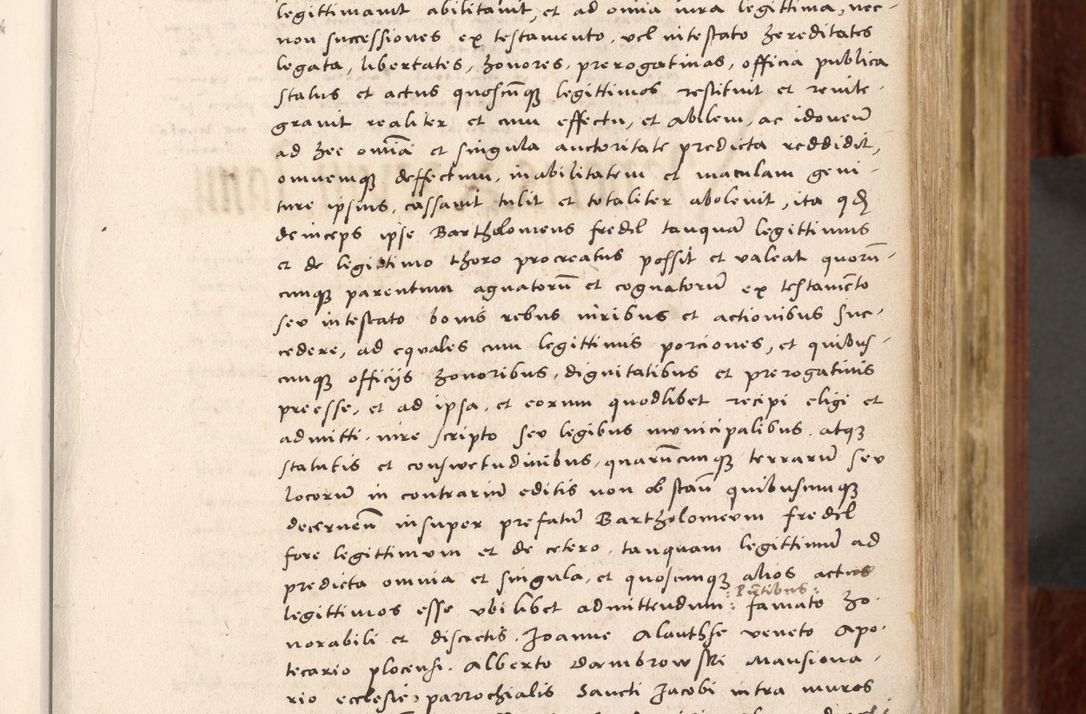 legittimavit abilitavit, et ad omnia iura legittima, nec-
non successiones ex testamento, vel intestato hereditates
legata, libertates, honores, prerogativas, officia publica
status et actus quoscūqꝫ legittimos restituit et reinte-
gravit realiter et cum effectu, et abilem, ac idoneū
ad hec omīa et singula auctoritate predicta reddidit,
omnemqꝫ deffectum, inabilitatem et maculam geni-
ture ipsius, cassavit tulit et totaliter abolevit, ita qđ
deinceps ipse Bartholomeus fredel tanquā legittimus
et de legittimo thoro procreatus possit et valeat quorū-
cunqꝫ parentum agnatorū et cognatorū ex testamēto
seu intestato bonis rebus iuribus et actionibus suc-
cedere, ad equales cum legittimis porciones, et quibus-
cunqꝫ officijs honoribus, dignitatibus et prerogativis
preesse, et ad ipsa, et eorum quodlibet recipi eligi et
admitti, iure scripto seu legibus municipalibus, atqꝫ
statutis et conswetudinibus, quarūcunqꝫ terrarū seu
locorū in contrariū editis non obstañ quibuscunqꝫ
decerneñ insuper prefatū Bartholomeum fredel
fore legittimum et de cetero, tanquam legittimū ad
predicta omnia et singula, et quoscunqꝫ alios actus
legittimos esse ubilibet admittendum : : Pn̄tibus : famato ho-
norabili et discretis Joanne Alanthse veneto apo-
tecario plocensi. Alberto Dambrowski Mansiona-
rio ecclesie parrochialis Sancti Jacobi intra muros